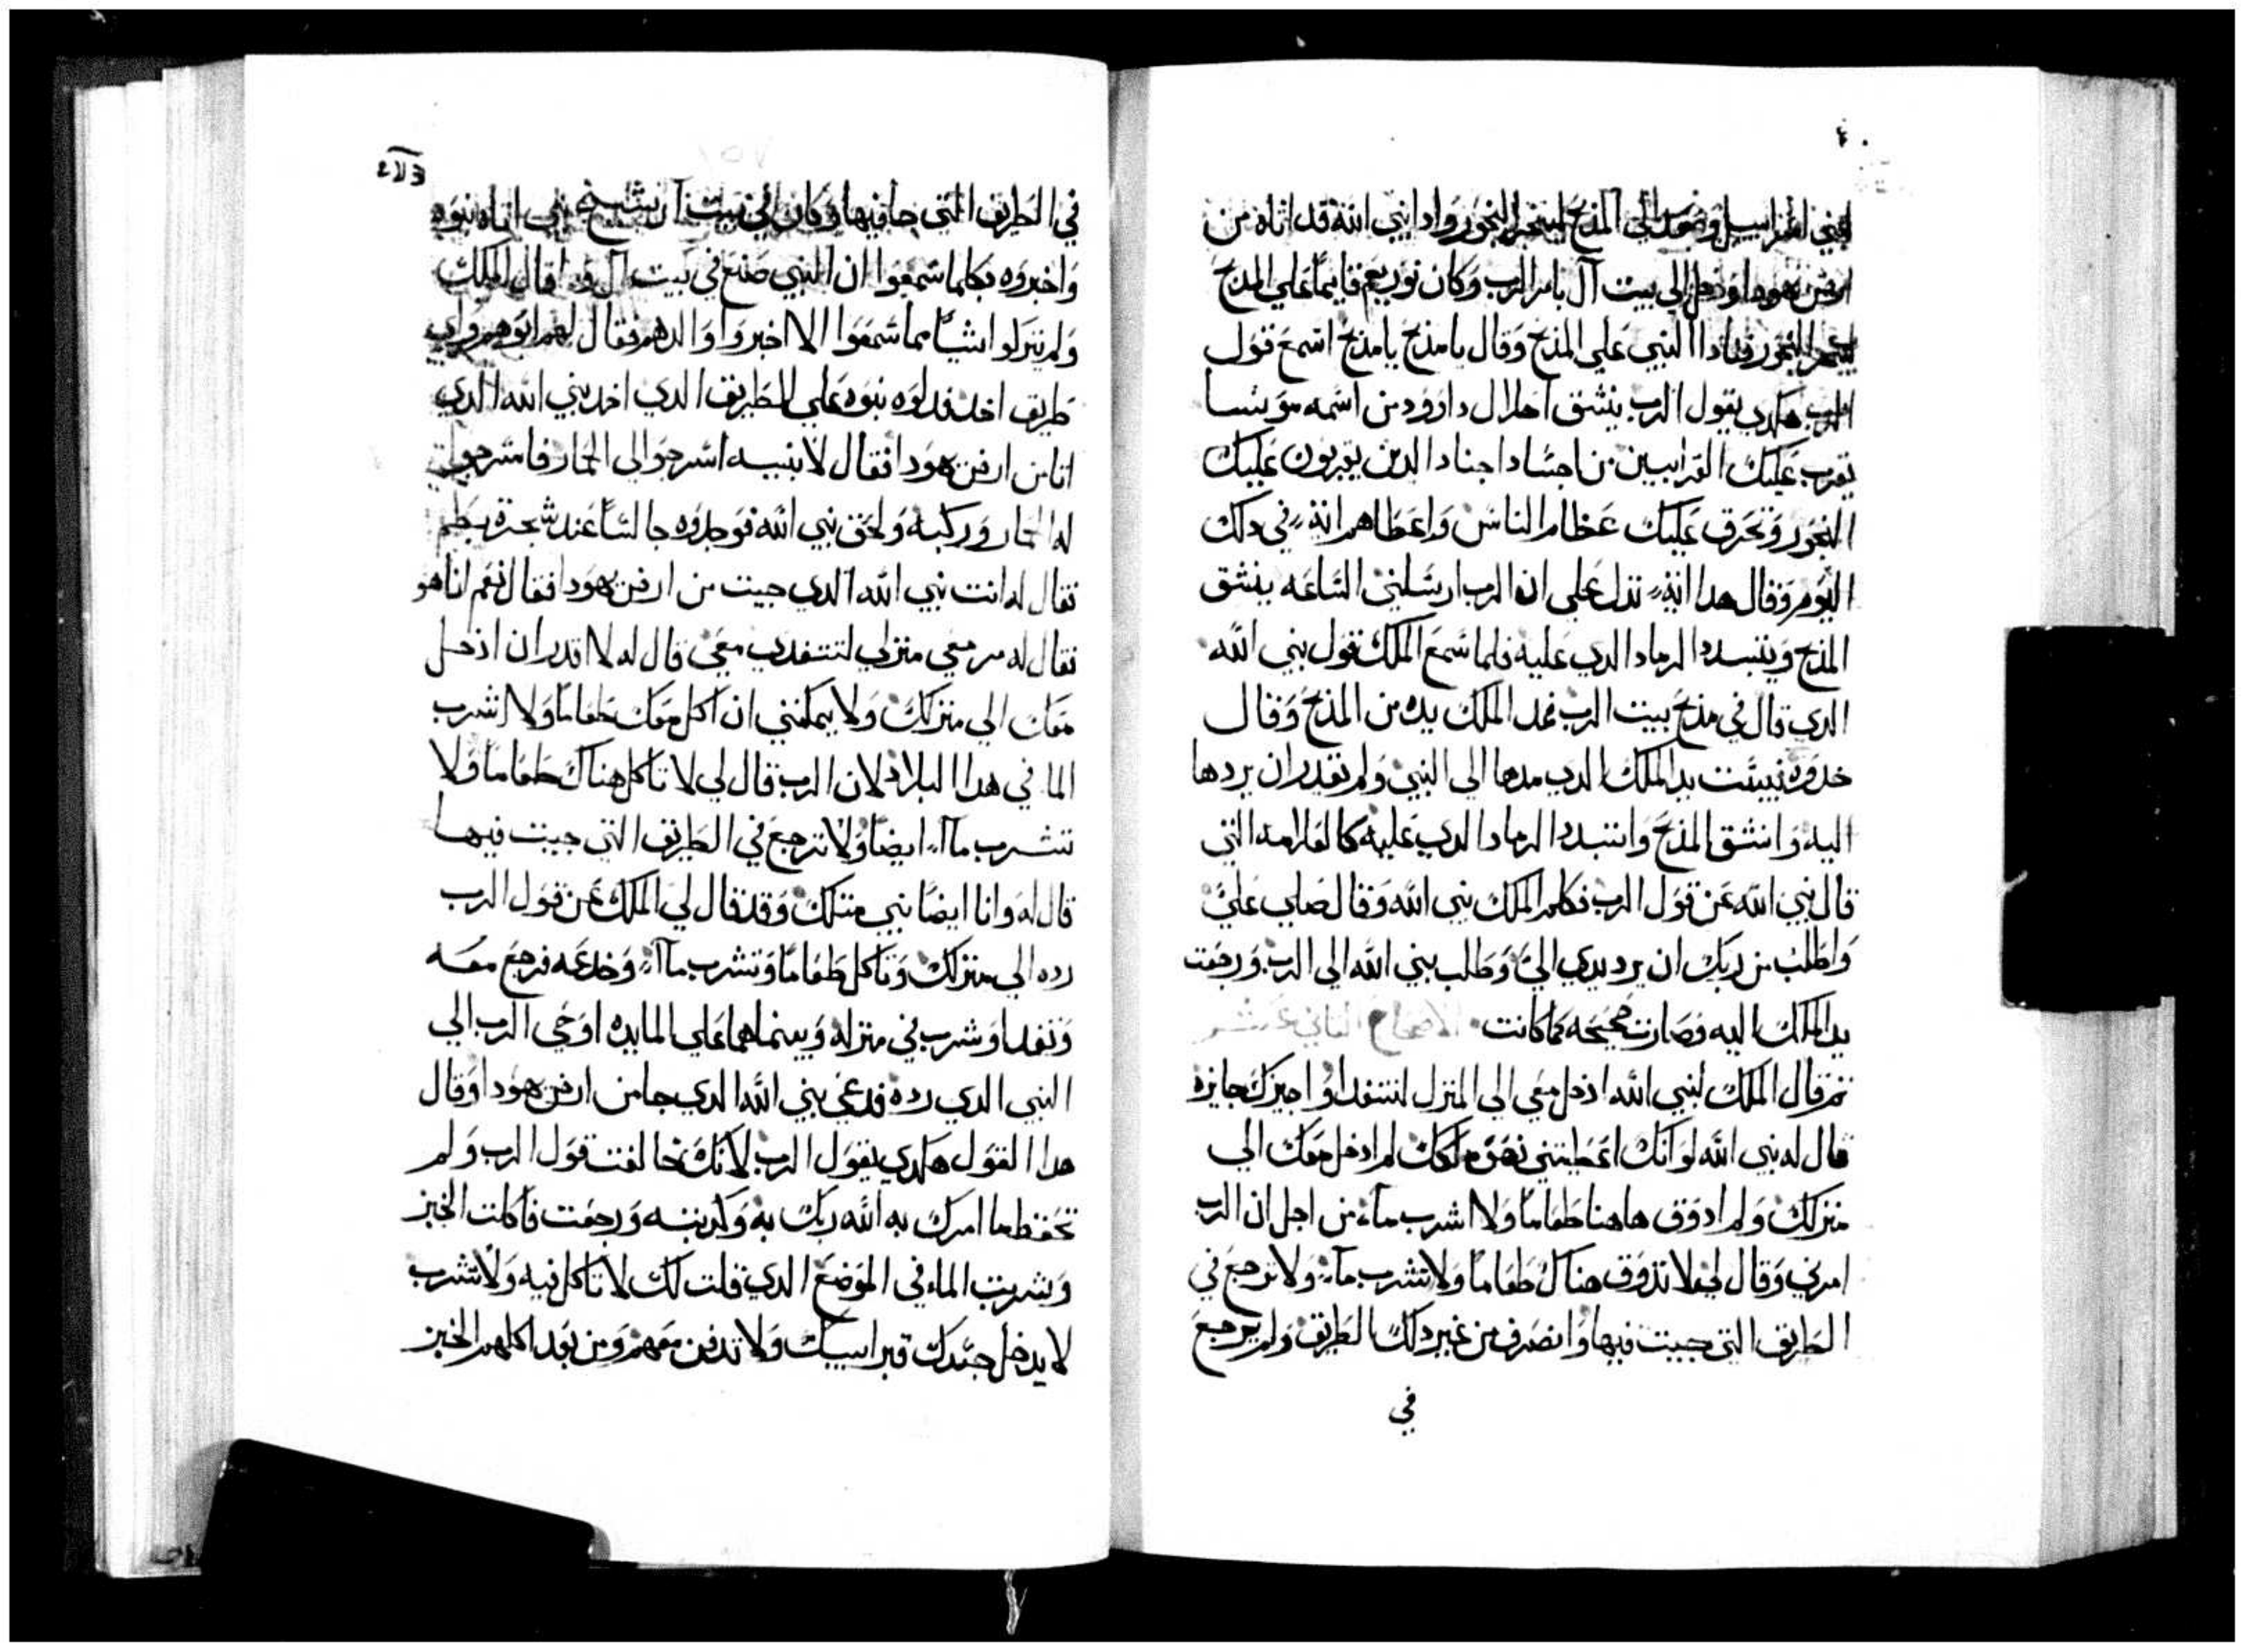 لبني اسراييل وصعد الي المذبح ليبخر البخور واذا بني الله قد اتاه من
ارض يهودا ودخل الي بيت آل بامر الرب وكان نوربعم قايمًا علي المذبح
البخور فنادا النبي علي المذبح وقال يا مذبح يا مذبح اسمع قول
الرب هكدي يقول الرب ينشق احلال داوود من اسمه موىسا
يقرب عليك القرابيين من اجساد اجناد الدين يقربون عليك
البخور وتحرق عليك عظام الناس واعطاهم اية في دلك
اليوم وقال هدا اية تدل علي ان الرب ارسلني الساعه ينشق
المذبح ويتبدد الرماد الدي عليه فلما سمع الملك قول بني الله
الدي قال في مذبح بيت الرب فمد الملك يده من المذبح وقال
خدوه فيبست يد الملك الدي مدها الي النبي ولم يقدر ان يردها
اليه وانشق المذبح وانتبدد الرماد الدي عليه كالعلامه التي
قال نبي الله عن قول الرب فكلم الملك نبي الله وقال صلي علي
واطلب من ربك ان يرد يدي الي وطلب بني الله الي الرب ورجعت
يد الملك اليه وصارت صحيحه كما كانت الاصحاح الثاني عشر
تم قال الملك لنبي الله ادخل معي الي المنزل لنتغدا واجيزك جايزه
قال له نبي الله لو انك اعطيتني نصف ملكك لم ادخل معك الي
منزلك ولم ادوق هاهنا طعامًا ولا اشرب مآء من اجل ان الرب
امرني وقال لي لا تذوق هناك طعامًا ولا تشرب مآء ولا ترجع في
الطريق التي جيت فيها وانصرف من غير دلك الطريق ولم يرجع
في
في الطريق التي جا فيها وكان في بيت آل شيخ نبي اتاه بنوه
واخبروه بكلما سمعوا ان النبي صنع في بيت آل وما قال للملك
ولم يتركوا شيًا مما سمعوا الا اخبروا والدهم فقال لهم ابوهم واي
طريق اخد فدلوه بنوه علي الطريق الدي اخد بني الله الدي
اتا من ارض يهودا فقال لابنيه اسرجوا لي الحمار فاسرجوا
له الحمار وركبه ولحق بني الله فوجدوه جالسًا عند شجرة بطم
فقال له انت نبي الله الدي جيت من ارض يهودا فقال نعم انا هو
فقال له سر معي منزلي لتتغدي معي قال له لا اقدر ان ادخل
معك الي منزلك ولا يمكنني ان اكل معك طعامًا ولا اشرب
الما في هدا البلاد لان الرب قال لي لا تاكل هناك طعامًا ولا
تشرب مآء ايضًا ولا ترجع في الطريق التي جيت فيها
قال له وانا ايضًا نبي متلك وقد قال لي الملك عن قول الرب
رده الي منزلك وتاكل طعامًا وتشرب مآء وخدعه فرجع معه
وتغدا وشرب في منزله وبينما هما علي المايده اوحي الرب الي
النبي الدي رده فدعي بني الله الدي جا من ارض يهودا وقال
هدا القول هكدي يقول الرب لانك خالفت قول الرب ولم
تحفظ ما امرك به الله ربك به وكدبته ورجعت فاكلت الخبز
وشربت الماء في الموضع الدي قلت لك لا تاكل فيه ولا تشرب
لا يدخل جسدك قبر ابييك ولا تدفن معهم ومن بعد اكلهم الخبز